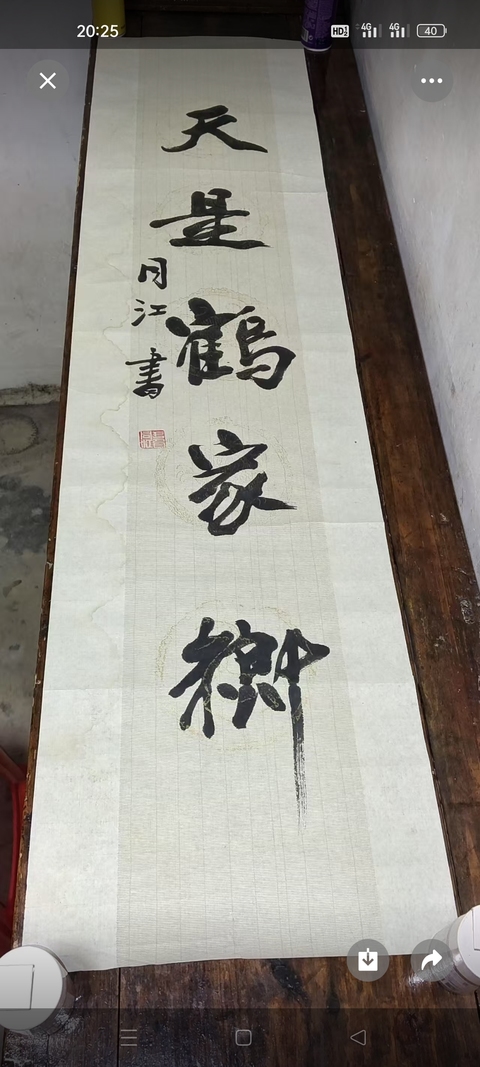 20:25 HD 4G 4G 40
天是鶴家鄉
江 書